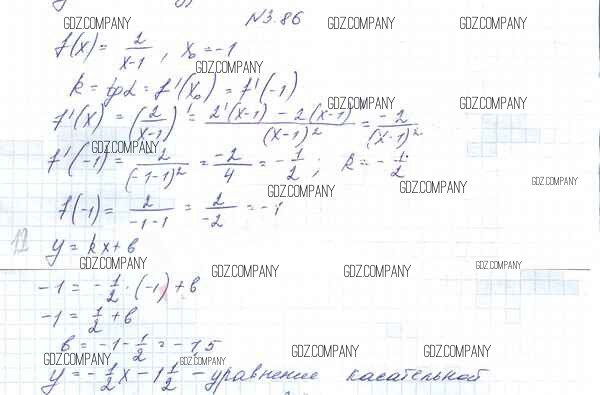 N3.86
GDZ.COMPANY GDZ.COMPANY GDZ.COMPANY GDZ.COMPANY
f(x) = 2/(x-1), x₀ = -1
GDZ.COMPANY
k = tgα = f'(x₀) = f'(-1)
GDZ.COMPANY GDZ.COMPANY
f'(x) = (2/(x-1))' = (2'(x-1) - 2(x-1)')/(x-1)² = -2/(x-1)²
GDZ.COMPANY
f'(-1) = 2/(-1-1)² = -2/4 = -1/2; k = -1/2
GDZ.COMPANY GDZ.COMPANY GDZ.COMPANY
f(-1) = 2/(-1-1) = 2/-2 = -1
12
y = kx + в
GDZ.COMPANY GDZ.COMPANY GDZ.COMPANY GDZ.COMPANY
-1 = -1/2 · (-1) + в
-1 = 1/2 + в
в = -1 - 1/2 = -1,5
GDZ.COMPANY GDZ.COMPANY GDZ.COMPANY GDZ.COMPANY
y = -1/2 x - 1 1/2 - уравнение касательной